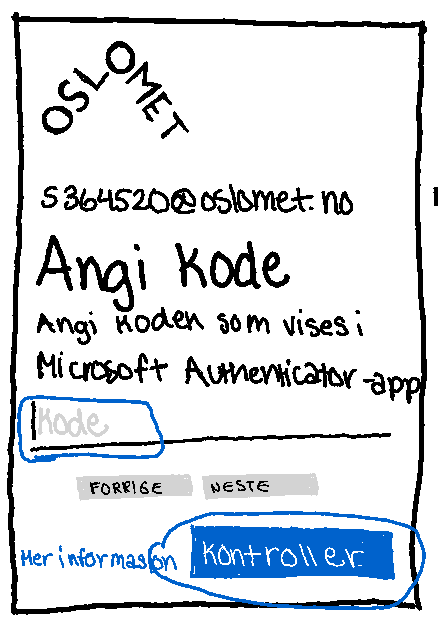 OSLOMET
s364520@oslomet.no
Angi kode
Angi koden som vises i
Microsoft Authenticator-app
Kode
FORRIGE NESTE
Mer informasjon Kontroller